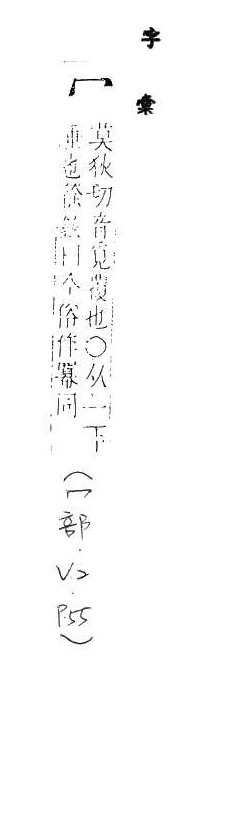 字彙
冖
莫狄切音覓覆也○从一下
垂也徐鉉曰今俗作冪同
(冖部.V2.P.55)